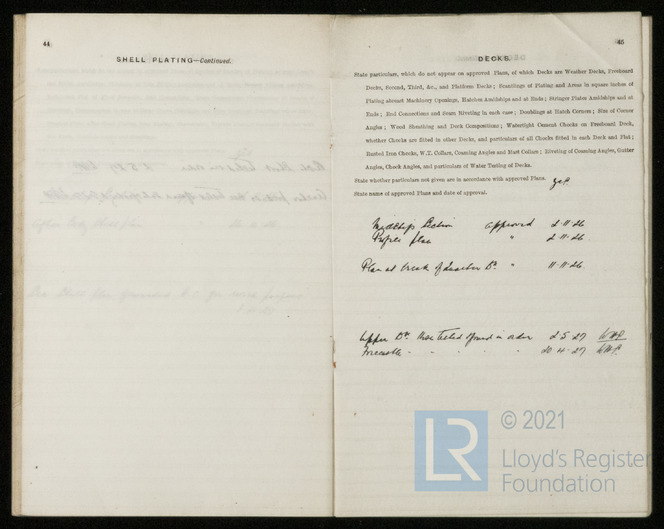 44
SHELL PLATING—Continued.
45
DECKS.
State particulars, which do not appear on approved Plans, of which Decks are Weather Decks, Freeboard
Decks, Second, Third, &c., and Platform Decks; Scantlings of Plating and Areas in square inches of
Plating abreast Machinery Openings, Hatches Amidships and at Ends; Stringer Plates Amidships and at
Ends; End Connections and Seam Riveting in each case; Doublings at Hatch Corners; Size of Corner
Angles; Wood Sheathing and Deck Compositions; Watertight Cement Chocks on Freeboard Deck,
whether Chocks are fitted in other Decks, and particulars of all Chocks fitted in each Deck and Flat;
Rusted Iron Chocks, W.T. Collars, Coaming Angles and Mast Collars; Riveting of Coaming Angles, Gutter
Angles, Chock Angles, and particulars of Water Testing of Decks.
State whether particulars not given are in accordance with approved Plans. yes.
State name of approved Plans and date of approval.
Midship Section approved 2.11.26
Profile plan " 2.11.26
Plan at break of Quarter Dk " 11.11.26
Upper Dk Hose tested & found in order 2.5.27
Forecastle " " " " 20.4.27
LR
© 2021
Lloyd's Register
Foundation